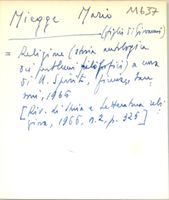 Miegge Mario 11637
(figlio di Giovanni)
= Religione (storia antologica
dei problemi filosofici) a cura
di U. Spirito, Firenze, San-
soni, 1965
[Riv. di Storia e Letteratura reli-
giosa, 1966, n. 2, p. 325]